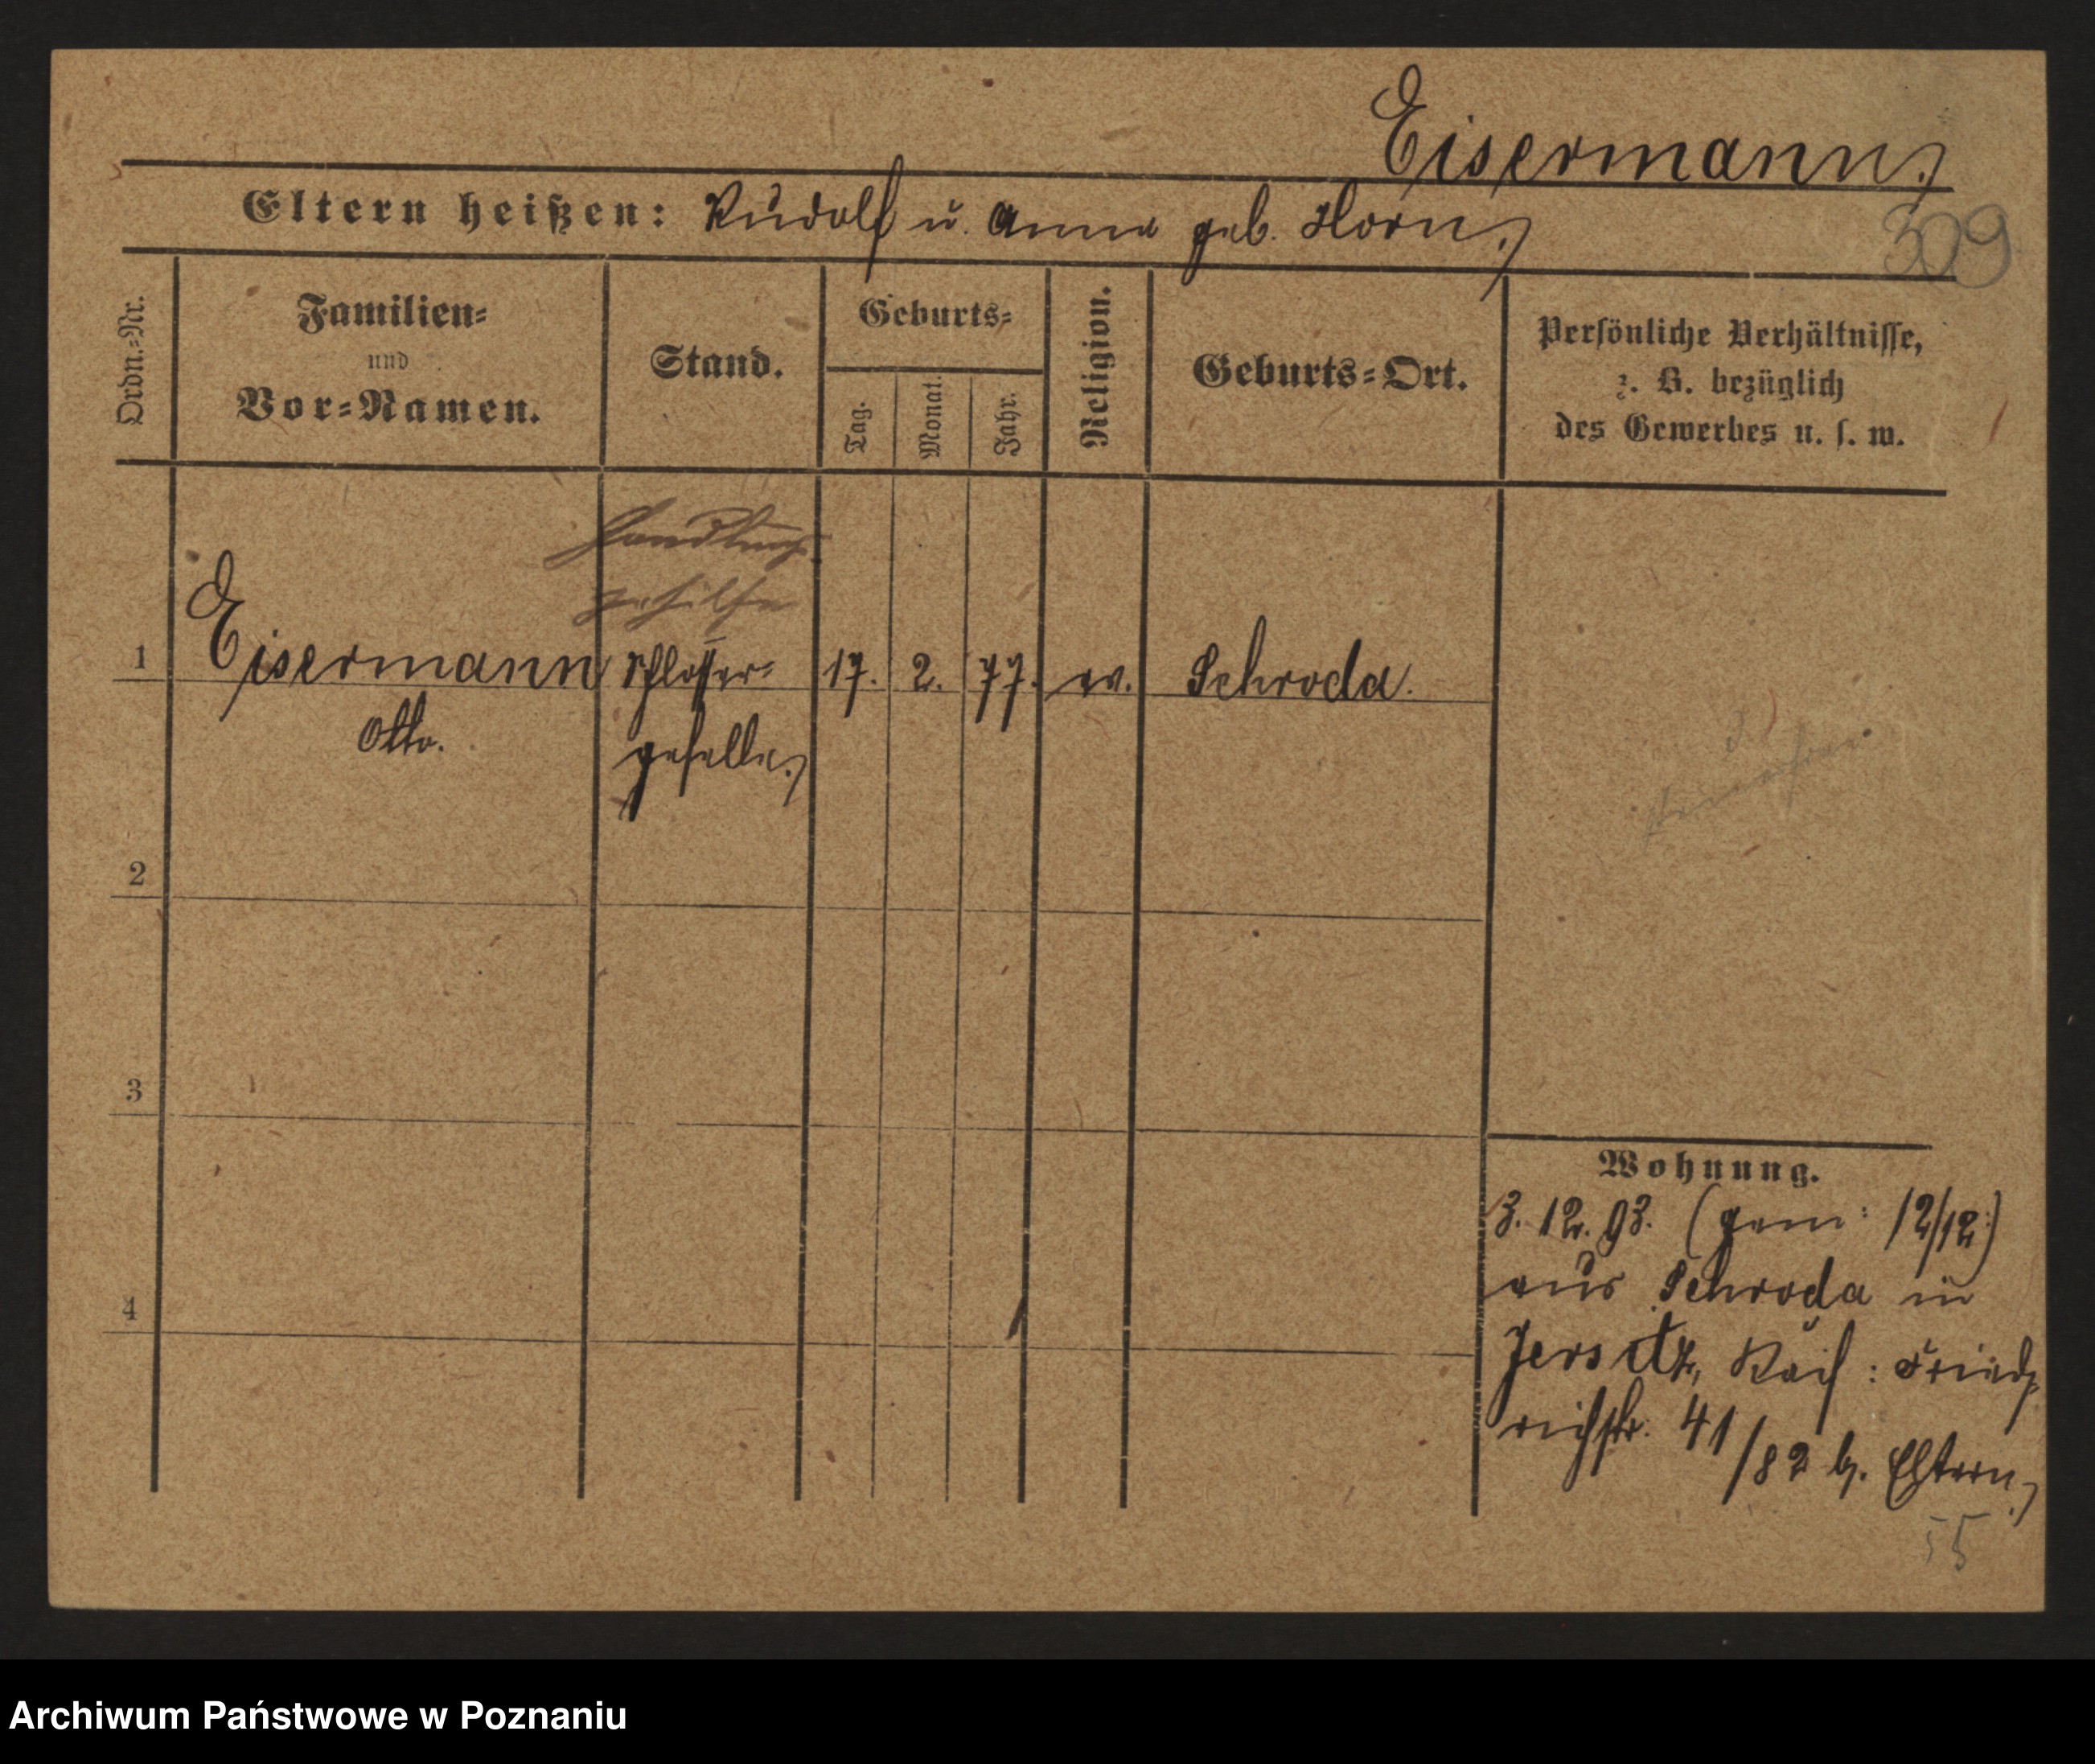 Eisermann.
Eltern heißen: Rudolf u. Anna geb. Horn.
309
Ordn.=Nr.
Familien=
und
Vor=Namen.
Stand.
Geburts=
Tag.
Monat.
Jahr.
Religion.
Geburts=Ort.
Persönliche Verhältnisse,
z. B. bezüglich
des Gewerbes u. s. w.
Handlungs
gehilfe
1 Eisermann Schlosser= 17. 2. 77. ev. Schroda.
Otto. geselle.
2
3
4
Wohnung.
3. 12. 93. (gem: 12/12.)
aus Schroda in
Jersitz, Kais: Fried=
richstr. 41/82 b. Eltern.
55
Archiwum Państwowe w Poznaniu